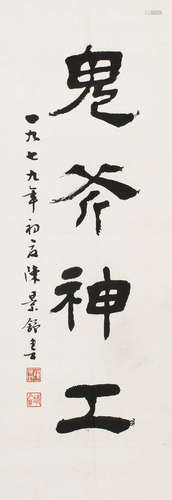 鬼斧神工
一九七九年初夏陳景舒書